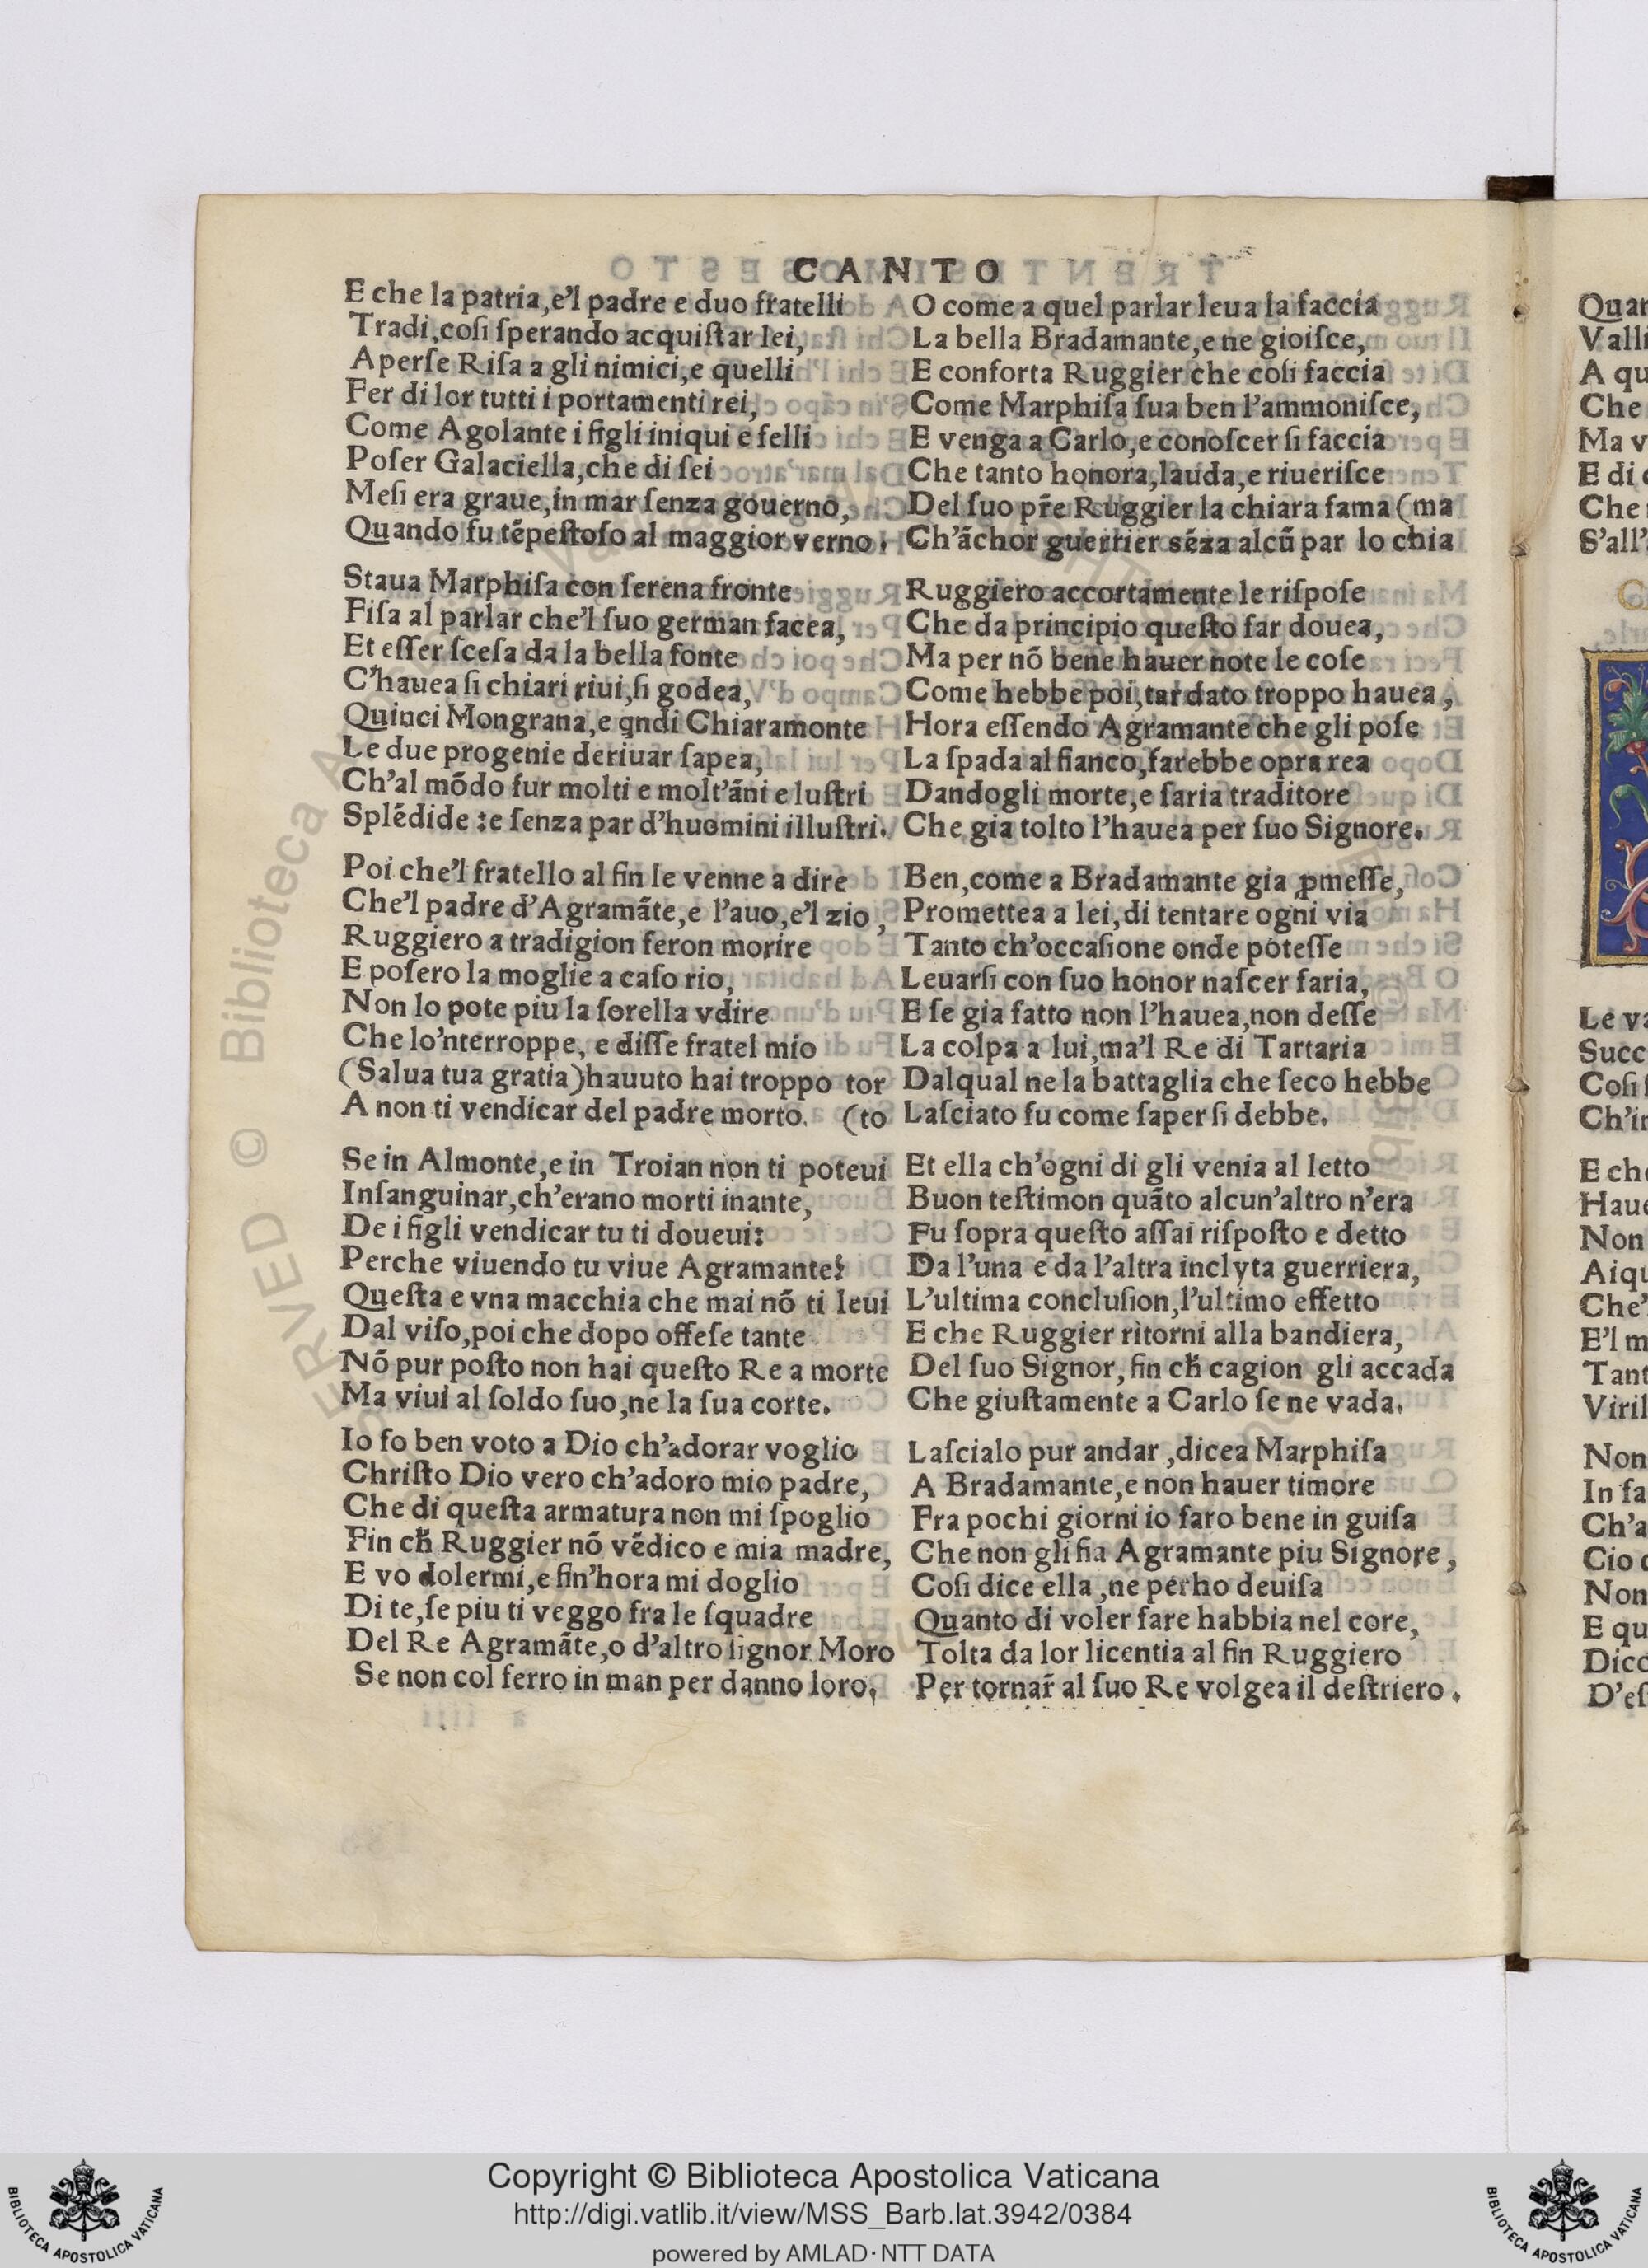 CANTO
E che la patria,e'l padre e duo fratelli
Tradi,coſi ſperando acquiſtar lei,
Aperſe Riſa a gli nimici,e quelli
Fer di lor tutti i portamenti rei,
Come Agolante i figli iniqui e felli
Poſer Galaciella,che di ſei
Meſi era graue,in mar ſenza gouerno,
Quando fu tẽpeſtoſo al maggior verno.
Staua Marphiſa con ſerena fronte
Fiſa al parlar che'l ſuo german facea,
Et eſſer ſceſa da la bella fonte
C'hauea ſi chiari riui,ſi godea,
Quinci Mongrana,e qndi Chiaramonte
Le due progenie deriuar ſapea,
Ch'al mõdo fur molti e molt'ãni e luſtri
Splẽdide :e ſenza par d'huomini illuſtri.
Poi che'l fratello al fin le venne a dire
Che'l padre d'Agramãte,e l'auo,e'l zio,
Ruggiero a tradigion feron morire
E poſero la moglie a caſo rio,
Non lo pote piu la ſorella vdire
Che lo'nterroppe, e diſſe fratel mio
(Salua tua gratia)hauuto hai troppo tor
A non ti vendicar del padre morto. (to
Se in Almonte,e in Troian non ti poteui
Inſanguinar,ch'erano morti inante,
De i figli vendicar tu ti doueui:
Perche viuendo tu viue Agramante?
Queſta e vna macchia che mai nõ ti leui
Dal viſo,poi che dopo offeſe tante
Nõ pur poſto non hai queſto Re a morte
Ma viui al ſoldo ſuo,ne la ſua corte.
Io fo ben voto a Dio ch'adorar voglio
Chriſto Dio vero ch'adoro mio padre,
Che di queſta armatura non mi ſpoglio
Fin cħ Ruggier nõ vẽdico e mia madre,
E vo dolermi,e fin'hora mi doglio
Di te,ſe piu ti veggo fra le ſquadre
Del Re Agramãte,o d'altro ſignor Moro
Se non col ferro in man per danno loro,
O come a quel parlar leua la faccia
La bella Bradamante,e ne gioiſce,
E conforta Ruggier che coſi faccia
Come Marphiſa ſua ben l'ammoniſce,
E venga a Carlo,e conoſcer ſi faccia
Che tanto honora,lauda,e riueriſce
Del ſuo pr̃e Ruggier la chiara fama (ma
Ch'ãchor guerrier sẽza alcũ par lo chia
Ruggiero accortamente le riſpoſe
Che da principio queſto far douea,
Ma per nõ bene hauer note le coſe
Come hebbe poi,tardato troppo hauea,
Hora eſſendo Agramante che gli poſe
La ſpada al fianco,farebbe opra rea
Dandogli morte,e ſaria traditore
Che gia tolto l'hauea per ſuo Signore.
Ben,come a Bradamante gia ꝓmeſſe,
Promettea a lei,di tentare ogni via
Tanto ch'occaſione onde poteſſe
Leuarſi con ſuo honor naſcer faria,
E ſe gia fatto non l'hauea,non deſſe
La colpa a lui,ma'l Re di Tartaria
Dalqual ne la battaglia che ſeco hebbe
Laſciato fu come ſaper ſi debbe.
Et ella ch'ogni di gli venia al letto
Buon teſtimon quãto alcun'altro n'era
Fu ſopra queſto aſſai riſpoſto e detto
Da l'una e da l'altra inclyta guerriera,
L'ultima concluſion,l'ultimo effetto
E che Ruggier ritorni alla bandiera,
Del ſuo Signor, fin cħ cagion gli accada
Che giuſtamente a Carlo ſe ne vada.
Laſcialo pur andar ,dicea Marphiſa
A Bradamante,e non hauer timore
Fra pochi giorni io faro bene in guiſa
Che non gli fia Agramante piu Signore,
Coſi dice ella ,ne perho deuiſa
Quanto di voler fare habbia nel core,
Tolta da lor licentia al fin Ruggiero
Per tornar̃ al ſuo Re volgea il deſtriero.
Quan
Valli
A qu
Che
Ma v
E di
Che
S'all'
Le va
Succ
Coſi
Ch'in
E che
Haue
Non
Aiqu
Che'
E'l m
Tant
Viril
Non
In fa
Ch'a
Cio
Non
E qu
Dicc
D'eſ
© Biblioteca
Copyright © Biblioteca Apostolica Vaticana
http://digi.vatlib.it/view/MSS_Barb.lat.3942/0384
powered by AMLAD·NTT DATA
BIBLIOTECA APOSTOLICA VATICANA
BIBLIOTECA APOSTOLICA VATICANA